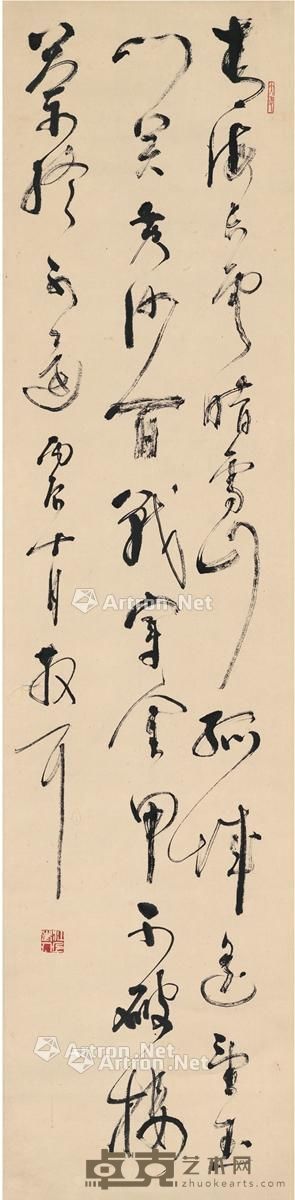 青海長雲暗雪山孤城遙望玉
門關黃沙百戰穿金甲不破樓
蘭終不還丙辰十月散耳
Artron.Net
Artron.Net
Artron.Net
Artron.Net
卓克艺术网
www.zhuokearts.com